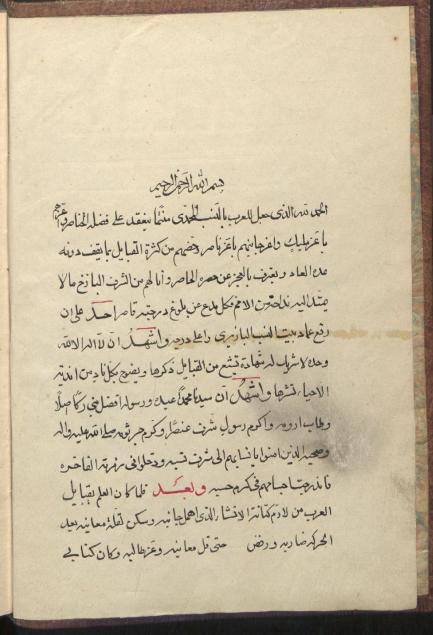 بسم الله الرحمن الرحيم
الحمد لله الذى جعل للعرب بالنسب المحمدى منتما ينعقد على فضله الخناصر
باعز مليك واعز جانبهم باعز ناصر وخصهم من كثرة القبايل بما يقف دونه
عده العاد ويعترف بالعجز عن حصره الحاصر وأنالهم من الشرف الباذخ ما لا
يمتد اليه يد احد من الامم فكل مدع عن بلوغ درجته قاصر احمده على ان
رفع عماد بيت النسب الباهرى واعلى درجه واشهد ان لا اله الا الله
وحده لا شريك له شهادة تتبع من القبايل ذكرها ويصرح بكل ناد من اندية
الاحياء نشرها واشهد ان سيدنا محمدا عبده ورسوله افضل نبى زكا اصلا
وطاب ارومه واكرم رسول شرف عنصرا وكرم جرثومه صلى الله عليه واله
وصحبه الذين انتموا بانسابهم الى شرف نسبه ودخلوا فى زمرته الفاخره
فاندرجت احسابهم فى كريم حسبه وبعد فلما كان العلم بقبايل
العرب من لازم كتابة الانشاء الذى اهمل جانبه وسكن لقلة معانيه بعد
الحركه ضاربه ورفض حتى قل معانيه وعز طالبه وكان كتابي